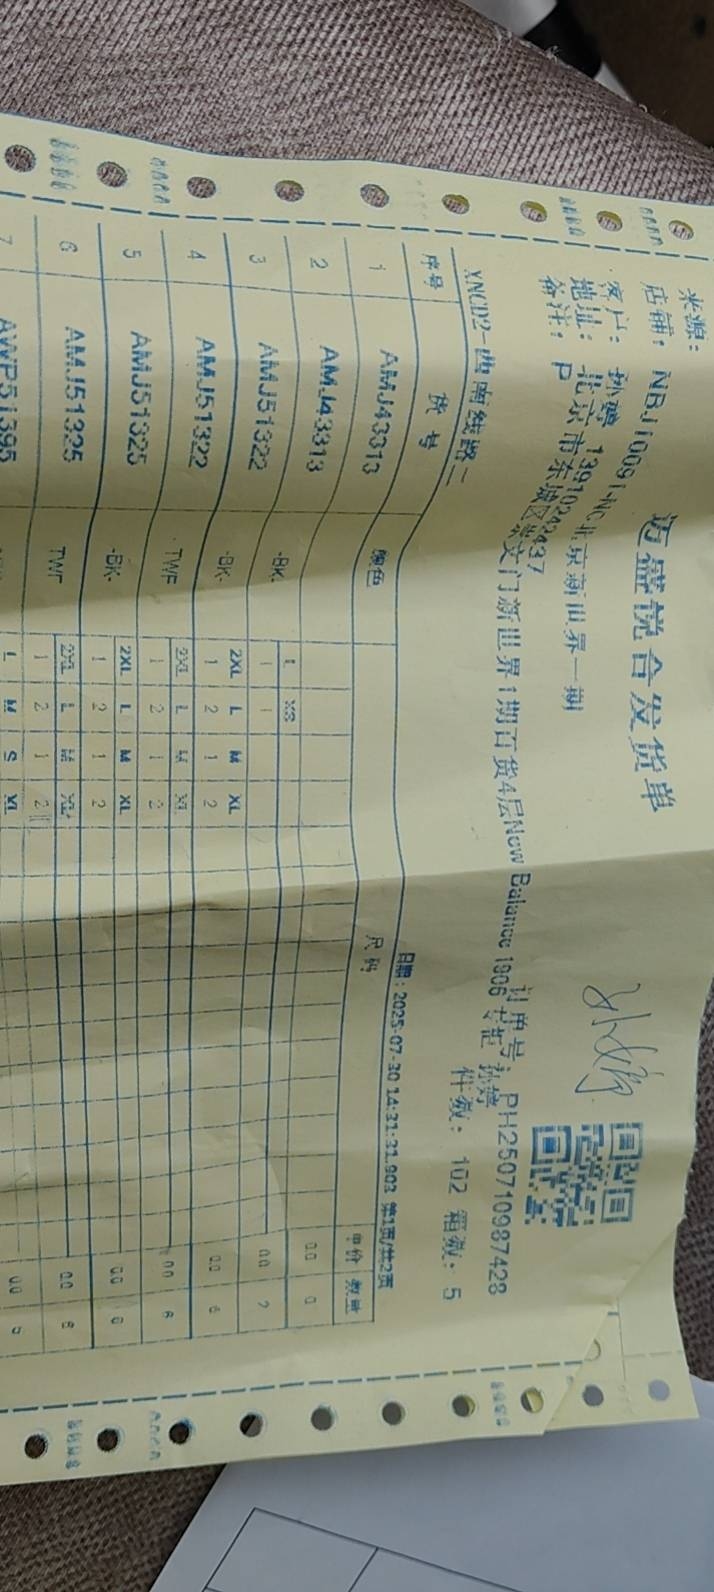 迈盛悦合发货单
来源：
店铺： NBJ10091-NC北京新世界一期
订单号：PH250710987428
客户： 孙婷 13910242437
件数： 102 箱数： 5
地址： 北京市东城区崇文门新世界1期百货4层New Balance 1906 专柜 孙婷
备注： P
XNCD2-西南线路二
日期：2025-07-30 14:31:31.903 第1页/共2页
序号 货号 颜色 尺码 单价 数量
1 AMJ43313 0.0 0
L XS
2 AMJ43313 -BK- 1 1 0.0 2
2XL L M XL
3 AMJ51322 -BK- 1 2 1 2 0.0 6
2XL L M XL
4 AMJ51322 TWF 1 2 1 2 0.0 6
2XL L M XL
5 AMJ51325 -BK- 1 2 1 2 0.0 6
2XL L M XL
6 AMJ51325 TWF 1 2 1 2 0.0 6
L M S XL
7 AWP51395 0.0